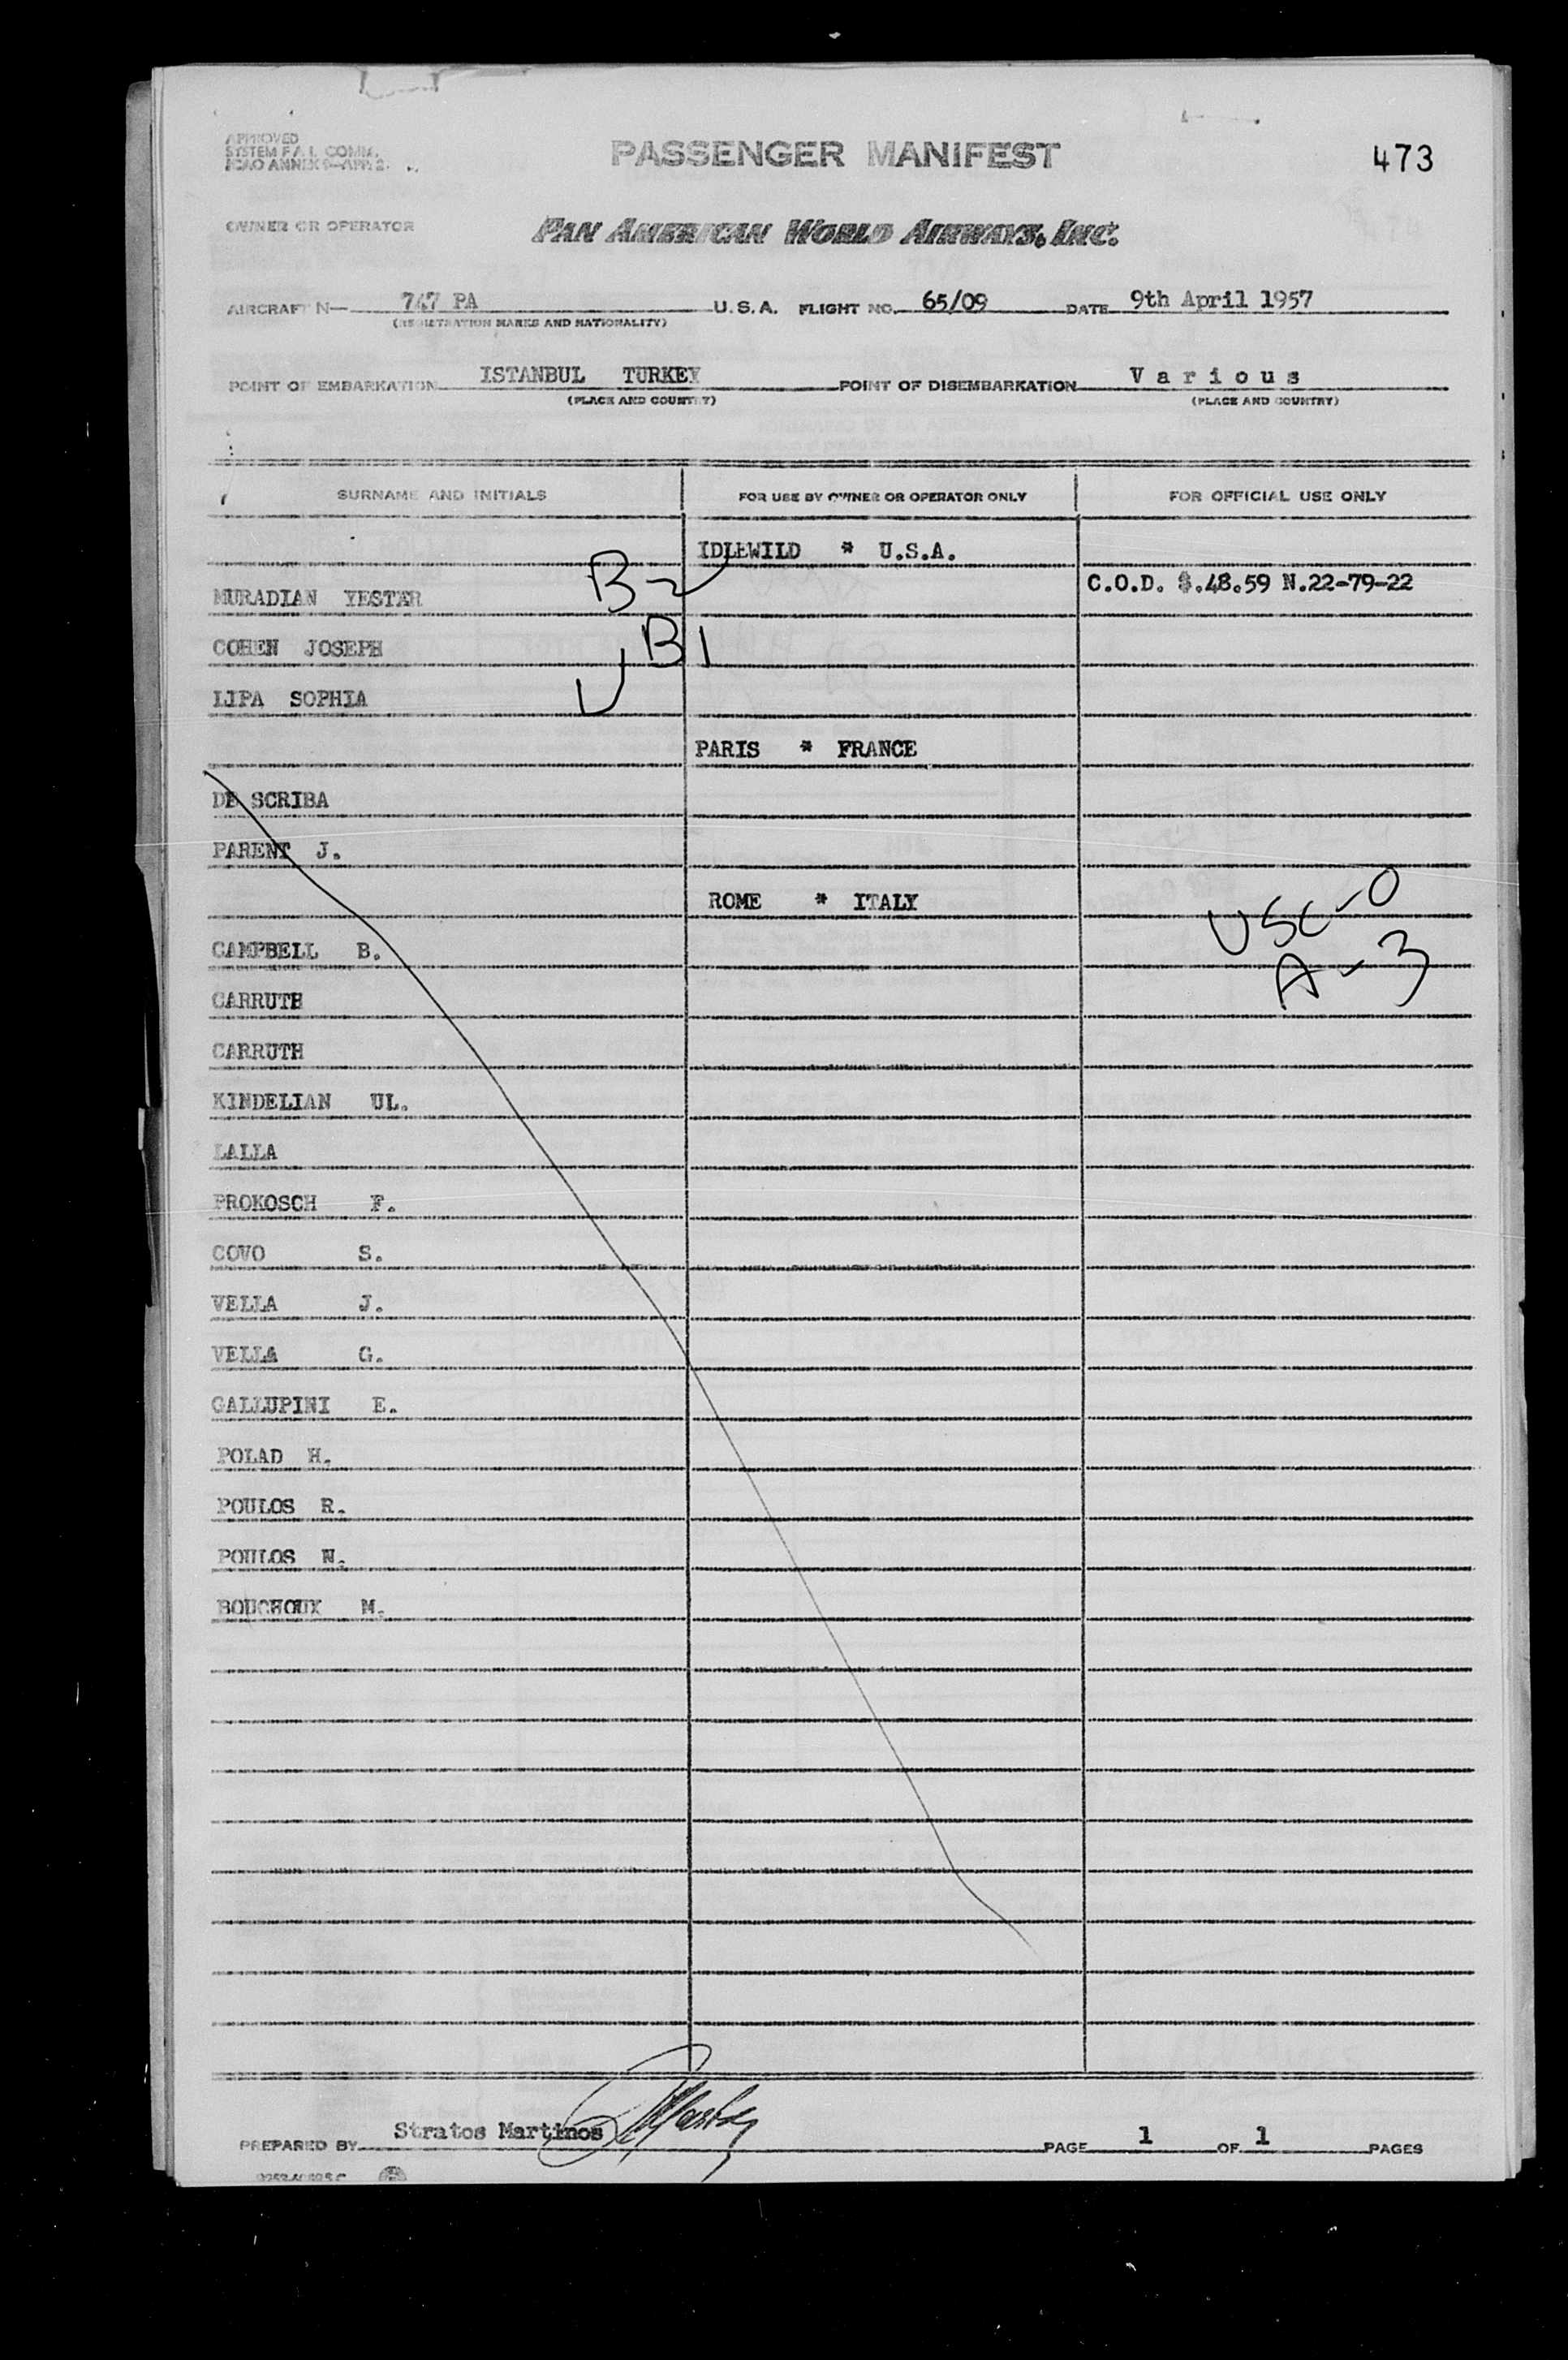 APPROVED
SYSTEM F.A.I. COMM.
ICAO ANNEX 9—APP. 2.
PASSENGER MANIFEST
473
OWNER OR OPERATOR
PAN AMERICAN WORLD AIRWAYS, INC.
AIRCRAFT N— 747 PA U.S.A. FLIGHT NO. 65/09 DATE 9th April 1957
(REGISTRATION MARKS AND NATIONALITY)
POINT OF EMBARKATION ISTANBUL TURKEY POINT OF DISEMBARKATION Various
(PLACE AND COUNTRY) (PLACE AND COUNTRY)
SURNAME AND INITIALS FOR USE BY OWNER OR OPERATOR ONLY FOR OFFICIAL USE ONLY
IDLEWILD * U.S.A.
MURADIAN YESTER B2 C.O.D. $.48.59 N.22-79-22
COHEN JOSEPH B1
LIPA SOPHIA
PARIS * FRANCE
DE SCRIBA
PARENT J.
ROME * ITALY USC-0
CAMPBELL B. A-3
CARRUTH
CARRUTH
KINDELIAN UL.
LALLA
PROKOSCH F.
COVO S.
VELLA J.
VELLA G.
GALLUPINI E.
POLAD H.
POULOS R.
POULOS N.
BOUCHOUX M.
PREPARED BY Stratos Martinos PAGE 1 OF 1 PAGES